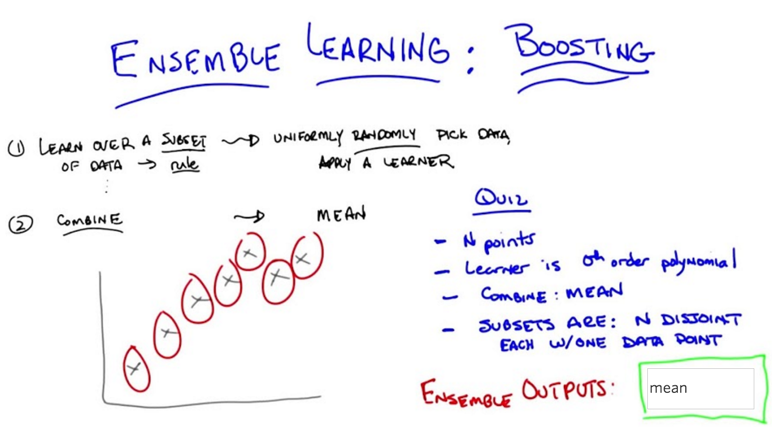 ENSEMBLE LEARNING: BOOSTING
① LEARN OVER A SUBSET → UNIFORMLY RANDOMLY PICK DATA,
OF DATA → rule APPLY A LEARNER
② COMBINE → MEAN
QUIZ
- N points
- Learner is 0th order polynomial
- COMBINE: MEAN
- SUBSETS ARE: N DISJOINT
EACH W/ONE DATA POINT
ENSEMBLE OUTPUTS: mean